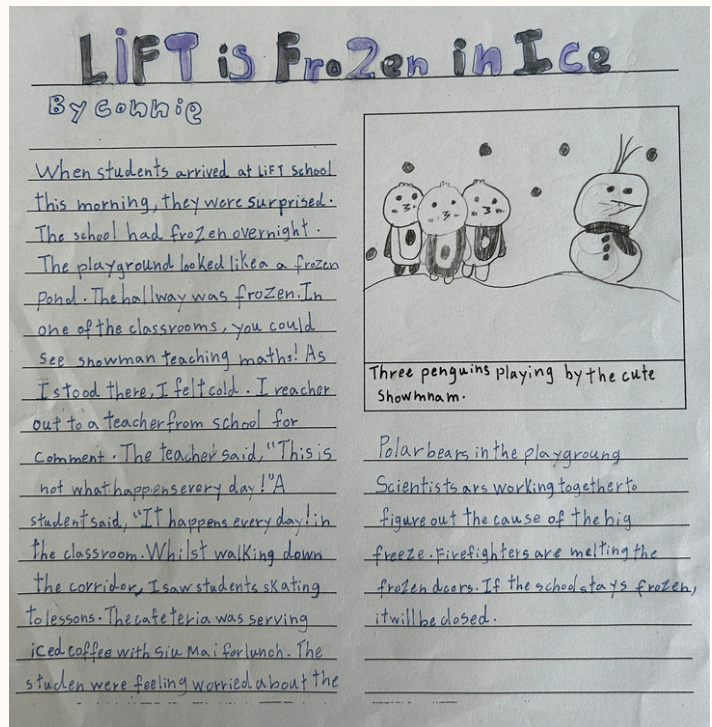 LiFT is FroZen in Ice
By Connie
When students arrived at LiFT school
this morning, they were surprised.
The school had froZen overnight.
The playground looked likea a frozen
pond. The hallway was frozen. In
one of the classrooms, you could
see snowman teaching maths! As
I stood there, I felt cold. I reacher
out to a teacher from school for
comment. The teacher said, "This is
not what happens every day!" A
student said, "It happens every day! in
the classroom. Whilst walking down
the corridor, I saw students skating
to lessons. The cafeteria was serving
iced coffee with Siu Mai for lunch. The
studen were feeling worried about the
Three penguins playing by the cute
Showmnam.
Polar bears in the playgroung
Scientists ars working together to
figure out the cause of the big
freeze. Firefighters are melting the
frozen doors. If the school stays frozen,
it will be closed.